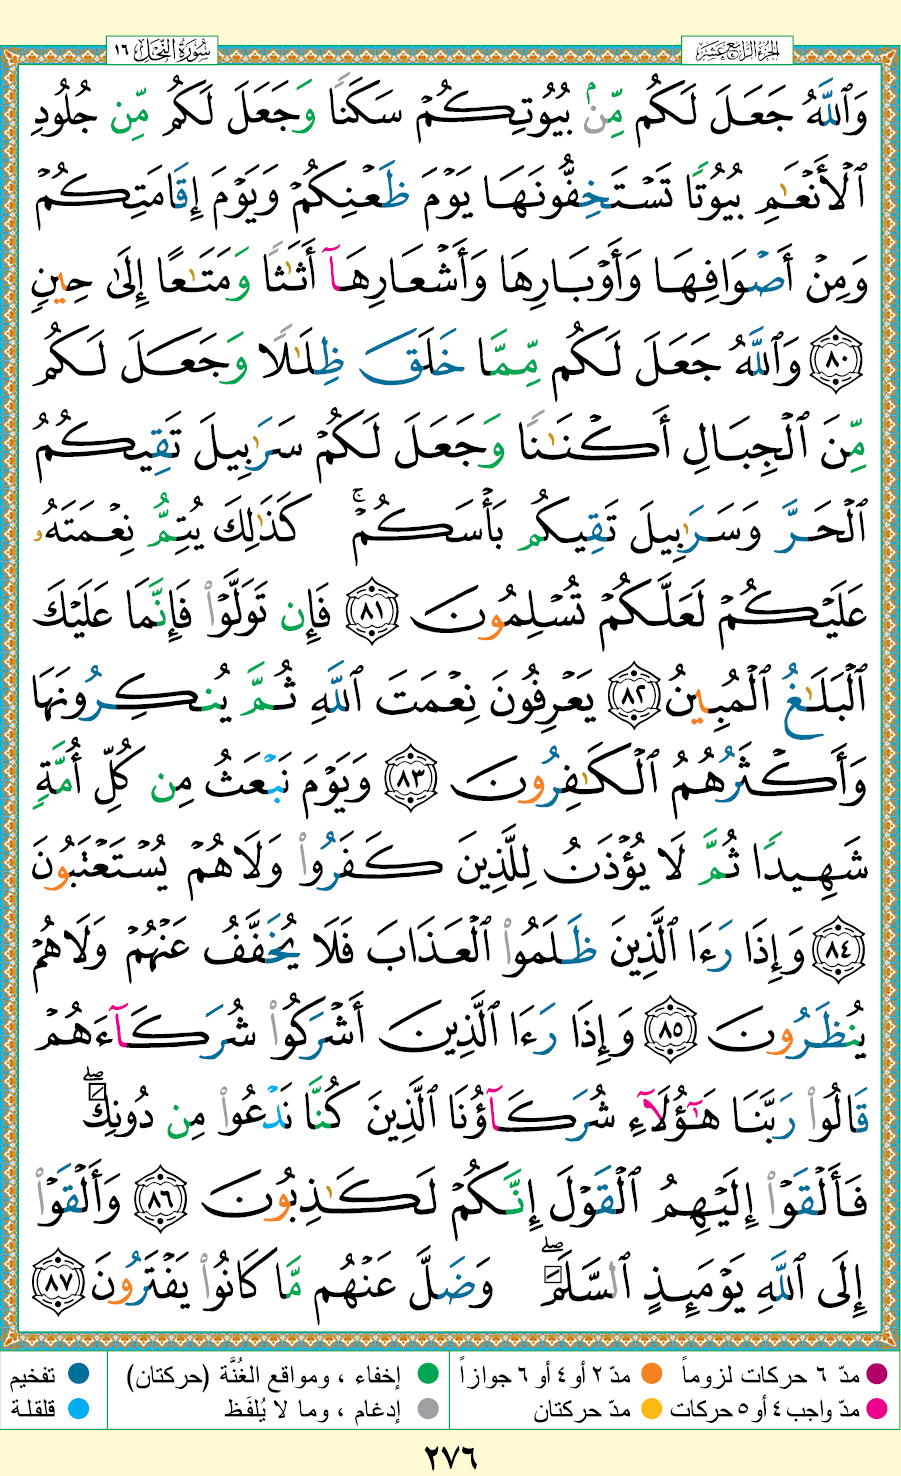 الجزء الرابع عشر
سورة النحل ١٦
وَٱللَّهُ جَعَلَ لَكُم مِّنۢ بُيُوتِكُمْ سَكَنًا وَجَعَلَ لَكُم مِّن جُلُودِ
ٱلْأَنْعَـٰمِ بُيُوتًا تَسْتَخِفُّونَهَا يَوْمَ ظَعْنِكُمْ وَيَوْمَ إِقَامَتِكُمْ
وَمِنْ أَصْوَافِهَا وَأَوْبَارِهَا وَأَشْعَارِهَآ أَثَـٰثًا وَمَتَـٰعًا إِلَىٰ حِينٍ
٨٠ وَٱللَّهُ جَعَلَ لَكُم مِّمَّا خَلَقَ ظِلَـٰلًا وَجَعَلَ لَكُم
مِّنَ ٱلْجِبَالِ أَكْنَـٰنًا وَجَعَلَ لَكُمْ سَرَٰبِيلَ تَقِيكُمُ
ٱلْحَرَّ وَسَرَٰبِيلَ تَقِيكُم بَأْسَكُمْ ۚ كَذَٰلِكَ يُتِمُّ نِعْمَتَهُۥ
عَلَيْكُمْ لَعَلَّكُمْ تُسْلِمُونَ ٨١ فَإِن تَوَلَّوْا۟ فَإِنَّمَا عَلَيْكَ
ٱلْبَلَـٰغُ ٱلْمُبِينُ ٨٢ يَعْرِفُونَ نِعْمَتَ ٱللَّهِ ثُمَّ يُنكِرُونَهَا
وَأَكْثَرُهُمُ ٱلْكَـٰفِرُونَ ٨٣ وَيَوْمَ نَبْعَثُ مِن كُلِّ أُمَّةٍ
شَهِيدًا ثُمَّ لَا يُؤْذَنُ لِلَّذِينَ كَفَرُوا۟ وَلَا هُمْ يُسْتَعْتَبُونَ
٨٤ وَإِذَا رَءَا ٱلَّذِينَ ظَلَمُوا۟ ٱلْعَذَابَ فَلَا يُخَفَّفُ عَنْهُمْ وَلَا هُمْ
يُنظَرُونَ ٨٥ وَإِذَا رَءَا ٱلَّذِينَ أَشْرَكُوا۟ شُرَكَآءَهُمْ
قَالُوا۟ رَبَّنَا هَـٰٓؤُلَآءِ شُرَكَآؤُنَا ٱلَّذِينَ كُنَّا نَدْعُوا۟ مِن دُونِكَ ۖ
فَأَلْقَوْا۟ إِلَيْهِمُ ٱلْقَوْلَ إِنَّكُمْ لَكَـٰذِبُونَ ٨٦ وَأَلْقَوْا۟
إِلَى ٱللَّهِ يَوْمَئِذٍ ٱلسَّلَمَ ۖ وَضَلَّ عَنْهُم مَّا كَانُوا۟ يَفْتَرُونَ ٨٧
مدّ ٦ حركات لزوماً مدّ ٢ أو ٤ أو ٦ جوازاً إخفاء ، ومواقع الغُنَّة (حركتان) تفخيم
مدّ واجب ٤ أو ٥ حركات مدّ حركتان إدغام ، وما لا يُلفَظ قلقلة
٢٧٦